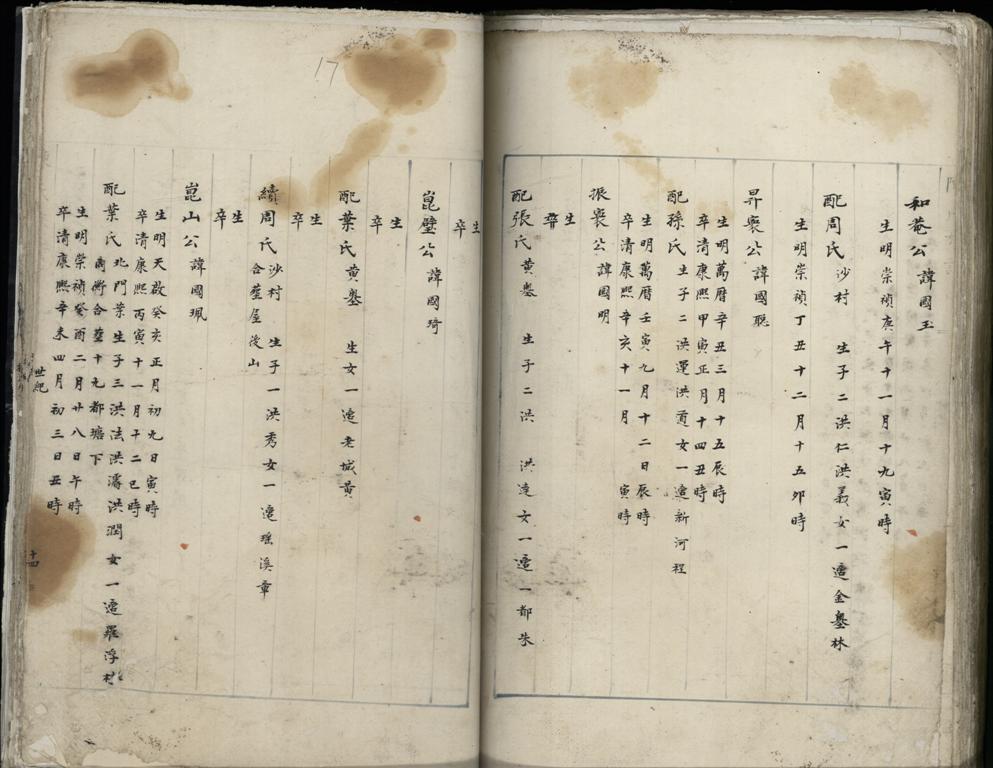 和菴公諱國玉
生明崇禎庚午十一月十九寅時
配周氏沙村 生子二洪仁洪義女一適金壘林
生明崇禎丁丑十二月十五卯時
昇寰公諱國聰
生明萬曆辛丑三月十五辰時
卒清康熙甲寅正月十四丑時
配孫氏生子二洪運洪道女一適新河程
生明萬曆壬寅九月十二日辰時
卒清康熙辛亥十一月 寅時
振寰公諱國明
生
卒
配張氏黃壘 生子二洪 洪逵女一適一都朱
生
卒
崑璧公諱國琦
生
卒
配葉氏黃壘 生女一適老城黃
生
卒
續周氏沙村 生子一洪秀女一適瑤溪章
合葬屋後山
生
卒
崑山公諱國珮
生明天啟癸亥正月初九日寅時
卒清康熙丙寅十一月十二巳時
配葉氏北門葉生子三洪法洪濤洪潤女一適羅浮林
合葬十九都塘下
生明崇禎癸酉二月廿八日午時
卒清康熙辛未四月初三日丑時
世紀
十四
17